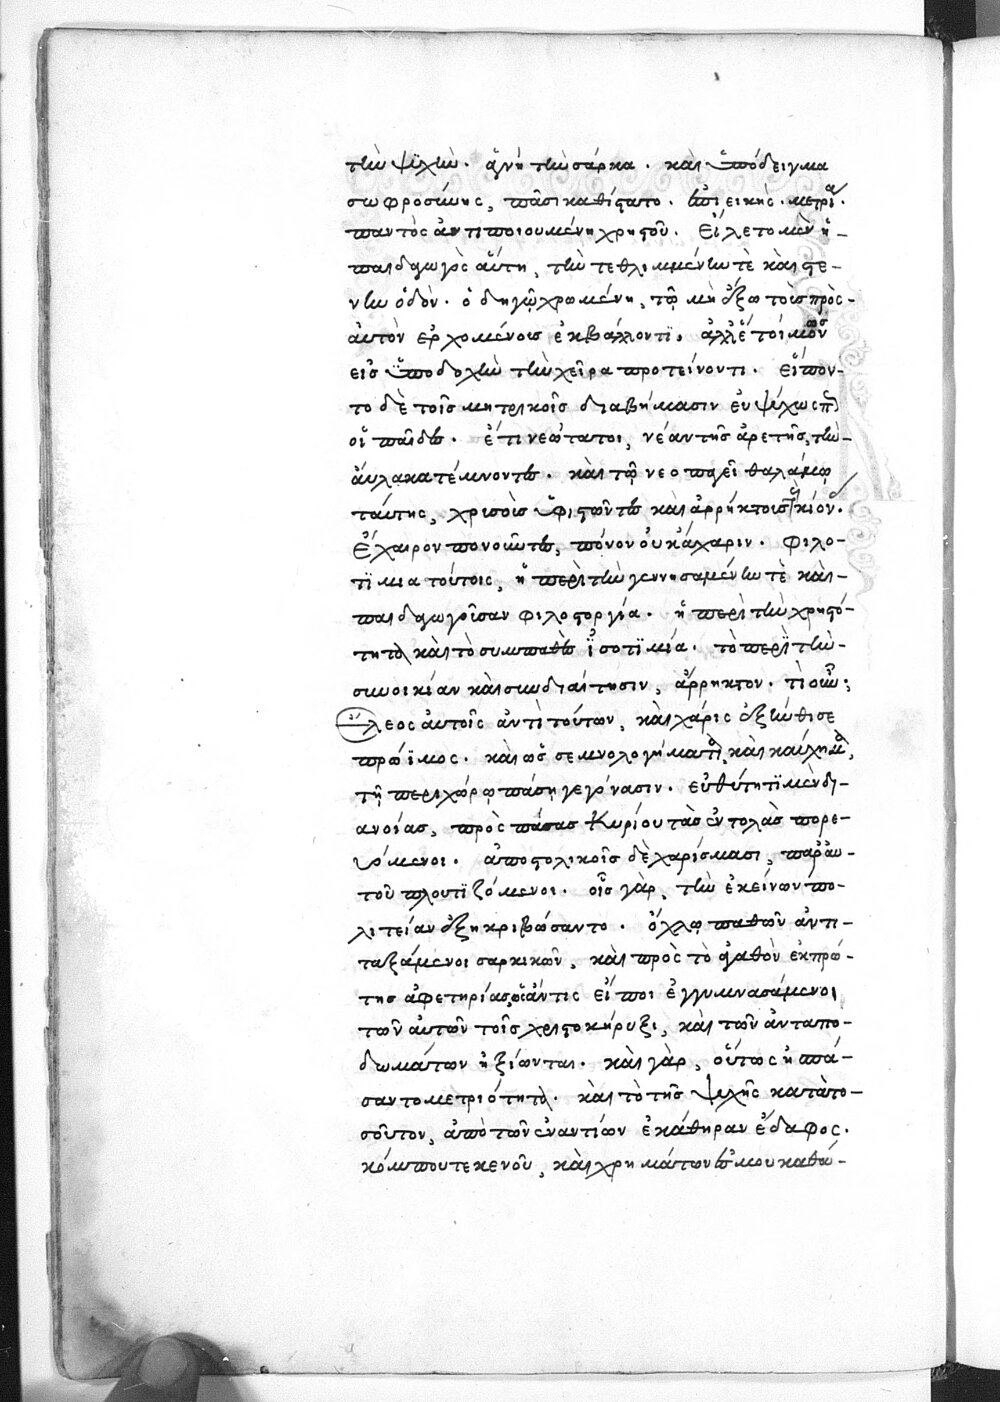 τὴν ψυχὴν. ἁγνὴ τὴν σάρκα. καὶ ὑπόδειγμα
σωφροσύνης, πᾶσι καθίστατο. ἐπιεικής. μετρία.
παντὸς ἀντιποιουμένη χρηστοῦ. Εἵλετο μὲν ἡ
παιδαγωγὸς αὕτη, τὴν τεθλιμμένην τὲ καὶ στε-
νὴν ὁδὸν. ὁδηγῷ χρωμένη, τῷ μὴ ἔξω τοὺς πρὸς
αὐτὸν ἐρχομένοις ἐκβάλλοντι. ἀλλ' ἑτοίμως
εἰς ὑποδοχὴν τὴν χεῖρα προτείνοντι. Εἵπον-
το δὲ τοῖς μητρικοῖς διαβήμασιν εὐψύχως
οἱ παῖδες. ἔτι νεώτατοι, νέαν τῆς ἀρετῆς, τὴν
αὔλακα τέμνοντες. καὶ τῷ νεοπαγεῖ θαλάμῳ
ταύτης, χρυσοῖς ὑφιστῶντες καὶ ἀρρήκτοις κίοσι.
Ἔχαιρον πονοῦντες, πόνον οὐκ ἄχαριν. Φιλο-
τιμία τούτοις, ἡ περὶ τὴν γεννησαμένην τὲ καὶ
παιδαγωγοῦσαν φιλοστοργία. ἡ περὶ τὴν χρηστό-
τητα καὶ τὸ συμπαθὲς ἰσοτιμία. τὸ περὶ τὴν
συνοικίαν καὶ συνδιαίτησιν, ἄρρηκτον. τί οὖν;
ἔλεος αὐτοῖς ἀντὶ τούτων, καὶ χάρις ἐξήνθισε
πρώϊμος. καὶ ὡς σεμνολογήματα, καὶ καύχημα,
τῇ περιχώρῳ πάσῃ γεγόνασιν. εὐθύτητι μὲν δι-
ανοίας, πρὸς πάσας Κυρίου τὰς ἐντολὰς πορε-
υόμενοι. ἀποστολικοῖς δὲ χαρίσμασι, παρ' αὐ-
τοῦ πλουτιζόμενοι. οἷς γὰρ, τὴν ἐκείνων πο-
λιτείαν ἐξηκριβώσαντο. ὄχλῳ παθῶν ἀντι-
ταξάμενοι σαρκικῶν, καὶ πρὸς τὸ ἀγαθὸν ἐκ πρώ-
της ἀφετηρίας ὡς ἄν τις εἴποι ἐγγυμνασάμενοι
τῶν αὐτῶν τοῖς χριστοκήρυξι, καὶ τῶν ἀνταπο-
δωμάτων ἠξίωνται. καὶ γὰρ, οὕτως ἠσπά-
σαντο μετριότητα. καὶ τὸ τῆς ψυχῆς κατὰ το-
σοῦτον, ἀπὸ τῶν ἐναντίων ἐκάθηραν ἔδαφος.
κόμπου τε κενοῦ, καὶ χρημάτων ἐσμοῦ καθά-